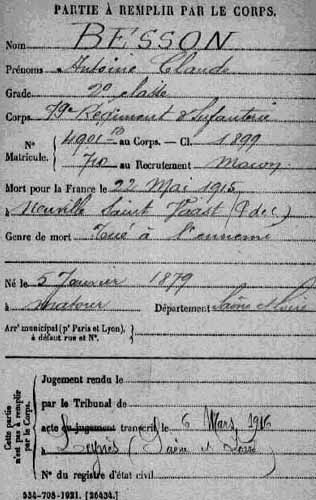 PARTIE À REMPLIR PAR LE CORPS.
Nom BESSON
Prénoms Antoine Claude
Grade 2e classe
Corps 79e Régiment d'Infanterie
N° Matricule. 4901 au Corps. — Cl. 1899
710 au Recrutement Macon
Mort pour la France le 22 Mai 1915
à Neuville Saint Vaast (P de C)
Genre de mort Tué à l'ennemi
Né le 5 Janvier 1879
à Matour Département Saône et Loire
Arrt municipal (pr Paris et Lyon),
à défaut rue et N°.
Cette partie
n'est pas à remplir
par le Corps.
Jugement rendu le
par le Tribunal de
acte ou jugement transcrit le 6 Mars 1916
à Leynes (Saône et Loire)
N° du registre d'état civil
534-708-1921. [26434.]